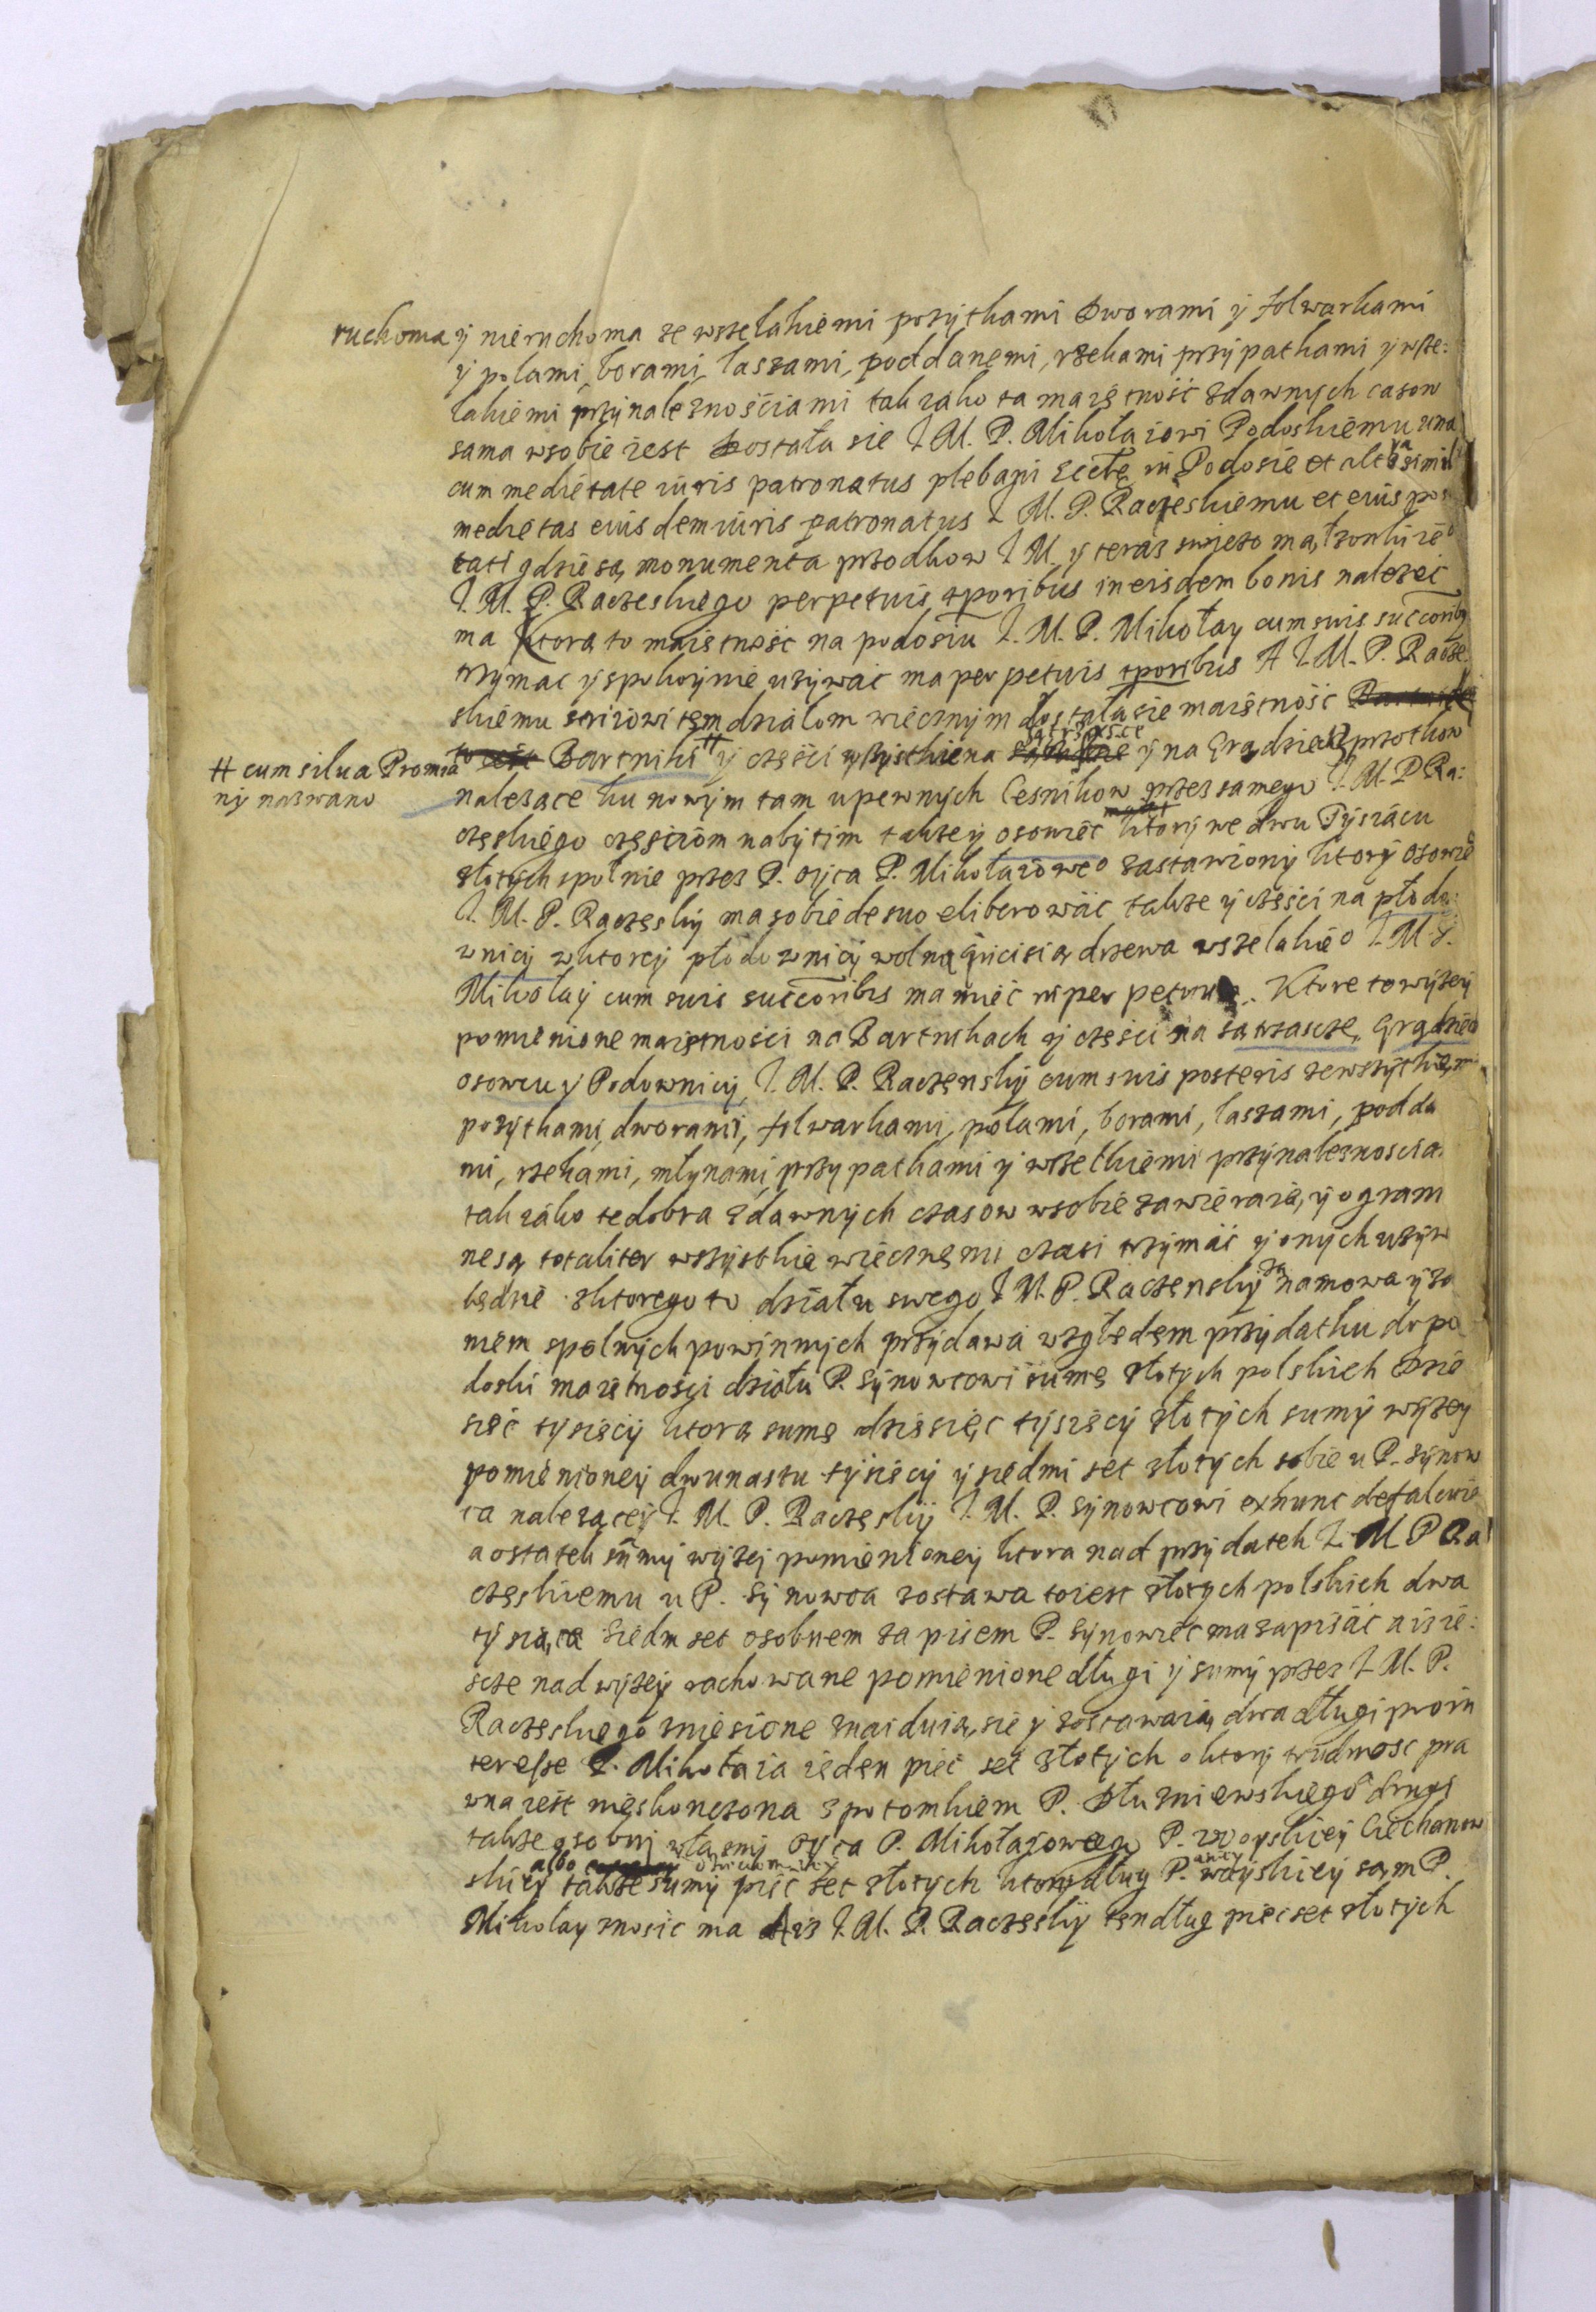 ruchoma y nieruchoma ze wszelakiemi pożytkami Dworami y folwarkami
y polami, borami, lassami, poddanemi, rzekami przypatkami y wsze:
lakiemi przynaleznościami tak iako ta maiętność zdawnych casow
sama wsobie iest Dostała sie I. M. P. Mikołaiowi Podoskiemu una
cum medietate iuris patronatus plebani eccłę in Podosie et altera simil
medietas eiusdem iuris patronatus I M. P. Raczeskiemu et eius pos
tati gdzie są monumenta przodkow I M. y teraz swiezo małzonki ie°
I. M. P. Raczeskiego perpetuis tporibus in eisdem bonis nalezeć
ma Ktora to maiętność na podosiu I. M. P. Mikołay cum suis succorib
trzymac y spokoynie uzywać ma perpetuis tporibus A I M. P. Racze
skiemu striiowi tem działom wiecznym dostała sie maiętność
Bartniki # y części wszystkie na sątrzasce y na Grądziech przotkow
# cum silua Promia
ny nazwano
nalezące ku nowym tam upewnych Cesnikow przez samego I. M. P Ra:
czeskiego częściom nabytim takze y osowiec ktory we dwu Tysiącu
złotych spolnie przez P. oyca P. Mikołaiowe° zastawiony ktory osowie
I. M. P. Raczesky ma sobie de suo eliberowác takze y części na płodo
wnicy wktorey płodownicy wolną drzewa wszelakie° I. M. P.
Mikołay cum suis succoribs ma mieć in perpetuum. Ktore to wyzey
pomienione maiętności na Bartnikach y części na sątrzascze, Grądziech
osowcu y Podownicy, I. M. P. Raczensky cum suis posteris ze wszytkiem
pozytkami, dworami, folwarkami, polami, borami, lassami, podda
mi, rzekami, młynami, przypatkami y wszelkiemi przynaleznoscia
tak iako te dobra zdawnych czasow wsobie zawieraią, y ogram
ne są totaliter wszystkie wiecznemi czasi trzymác y onych uzyw
będzie zktorego to działu swego I M. P. Raczensky za namową y
niem spolnych powinnych przydawa względem przydatku do po
doski maiętności działu P. Synowcowi sumę złotych polskich Dzie
sięć tysięcy ktorą sumę dziesięc tysięcy złotych sumy wyzey
pomienioney dwunastu tysięcy y siedmi set złotych sobie u P. synow
ca nalezącey I. M. P. Raczesky I. M. P. Synowcowi exhunc defalcuie
a ostatek sumy wyzey pomienioney ktora nad przydatek I. M P Ra
czeskiemu u P. Synowca zostawa toiest złotych polskich dwa
tysiąca Siedm set osobnem zapisem P. Synowiec ma zapisać a iesie:
scze nad wyzey rachowane pomienione długi y sumy przez I. M. P.
Raczeskiego zniesione znaiduią sie y zostawaią dwa długi pro in
teresse P. Mikołaia ieden pięć set złotych o ktory trudnosc pra
wna iest nieskonczona z potomkiem P. Dłuzniewskiego drugi
takze osobny własny Oyca P. Mikołajowego P. woyskiey Ciechanow
skiey takze sumy pięc set złotych ktory dług P. woyskiey sam P.
albo
Mikołay znosic ma I. M. P. Raczesky ten dług pięcset złotych